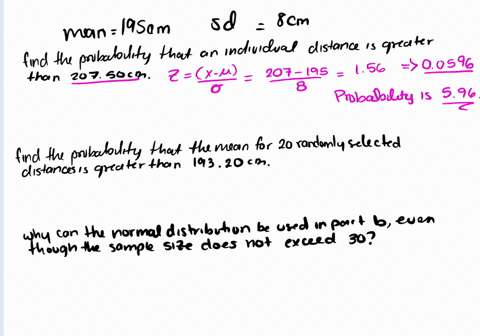 mean = 195cm sd = 8cm
find the probability that an individual distance is greater
than 207.50cm. z = (x-μ)/σ = 207-195/8 = 1.56 => 0.0596
Probability is 5.96%
find the probability that the mean for 20 randomly selected
distances is greater than 193.20cm.
why can the normal distribution be used in part b, even
though the sample size does not exceed 30?